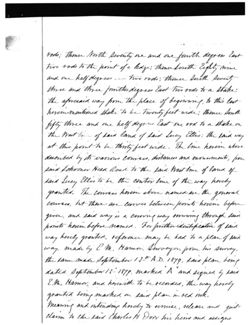 rods; thence North Seventy one and one fourth degrees East
two rods to the point of a ledge; thence South Eighty nine
and one half degrees two rods; thence South twenty
three and three fourths degrees East two rods to a stake:
the aforesaid way from the place of beginning to this last
herein mentioned stake to be twenty feet wide; thence South
fifty three and one half degrees East one rod to a stake on
the West line of said land of said Lucy Ellis: the said way
at this point to be thirty feet wide. The line herein above
described by its various courses, distances and monuments, from
said Schooner Head Road to the said West line of land of
said Lucy Ellis to be the centre line of the way hereby
granted. The courses herein above named are the general
courses, but there are curves between points herein before
given, and said way is a curving way running through said
points herein before named. For further identification of said
way hereby granted, reference may be had to a plan of said
way, made by E. M. Hamor, Surveyor from his survey,
the same made September 12th A.D. 1899, said plan being
dated September 15th 1899 marked "A" and signed by said
E. M. Hamor, and herewith to be recorded, the way hereby
granted being marked on said plan in red ink.
Meaning and intending hereby to remise, release and quit
claim to the said Charles H. Dorr his heirs and assigns